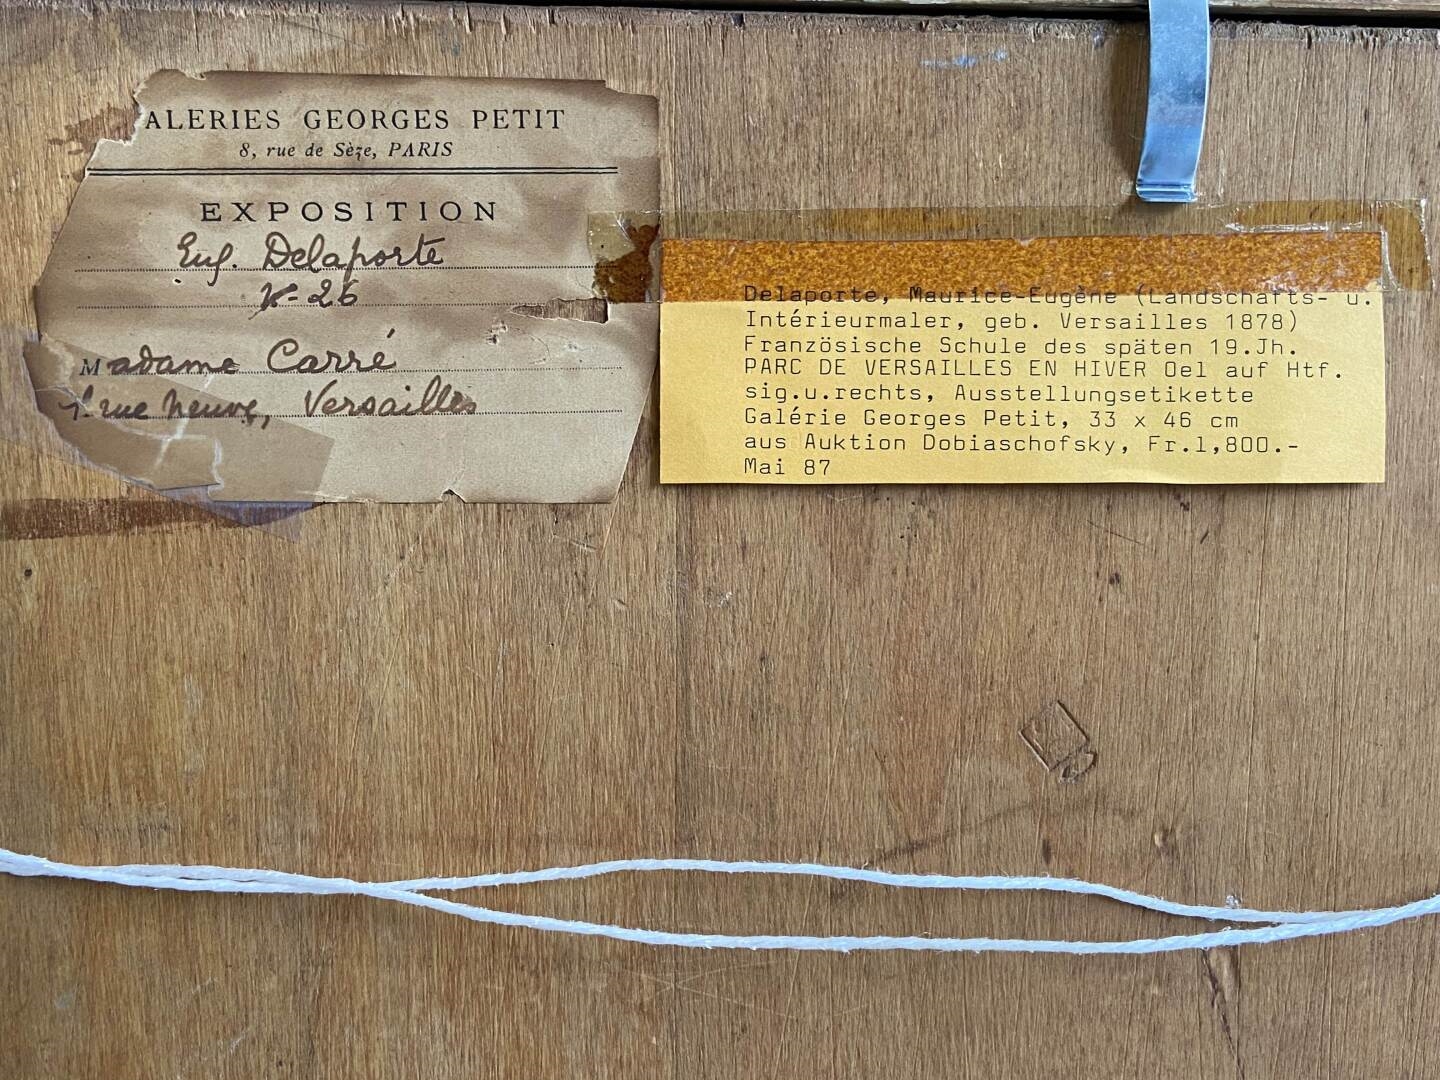 ALERIES GEORGES PETIT
8, rue de Sèze, PARIS
EXPOSITION
Eug. Delaporte
N° 26
Madame Carré
rue Neuve, Versailles
Delaporte, Maurice-Eugène (Landschafts- u.
Intérieurmaler, geb. Versailles 1878)
Französische Schule des späten 19.Jh.
PARC DE VERSAILLES EN HIVER Oel auf Htf.
sig.u.rechts, Ausstellungsetikette
Galérie Georges Petit, 33 x 46 cm
aus Auktion Dobiaschofsky, Fr.1,800.-
Mai 87